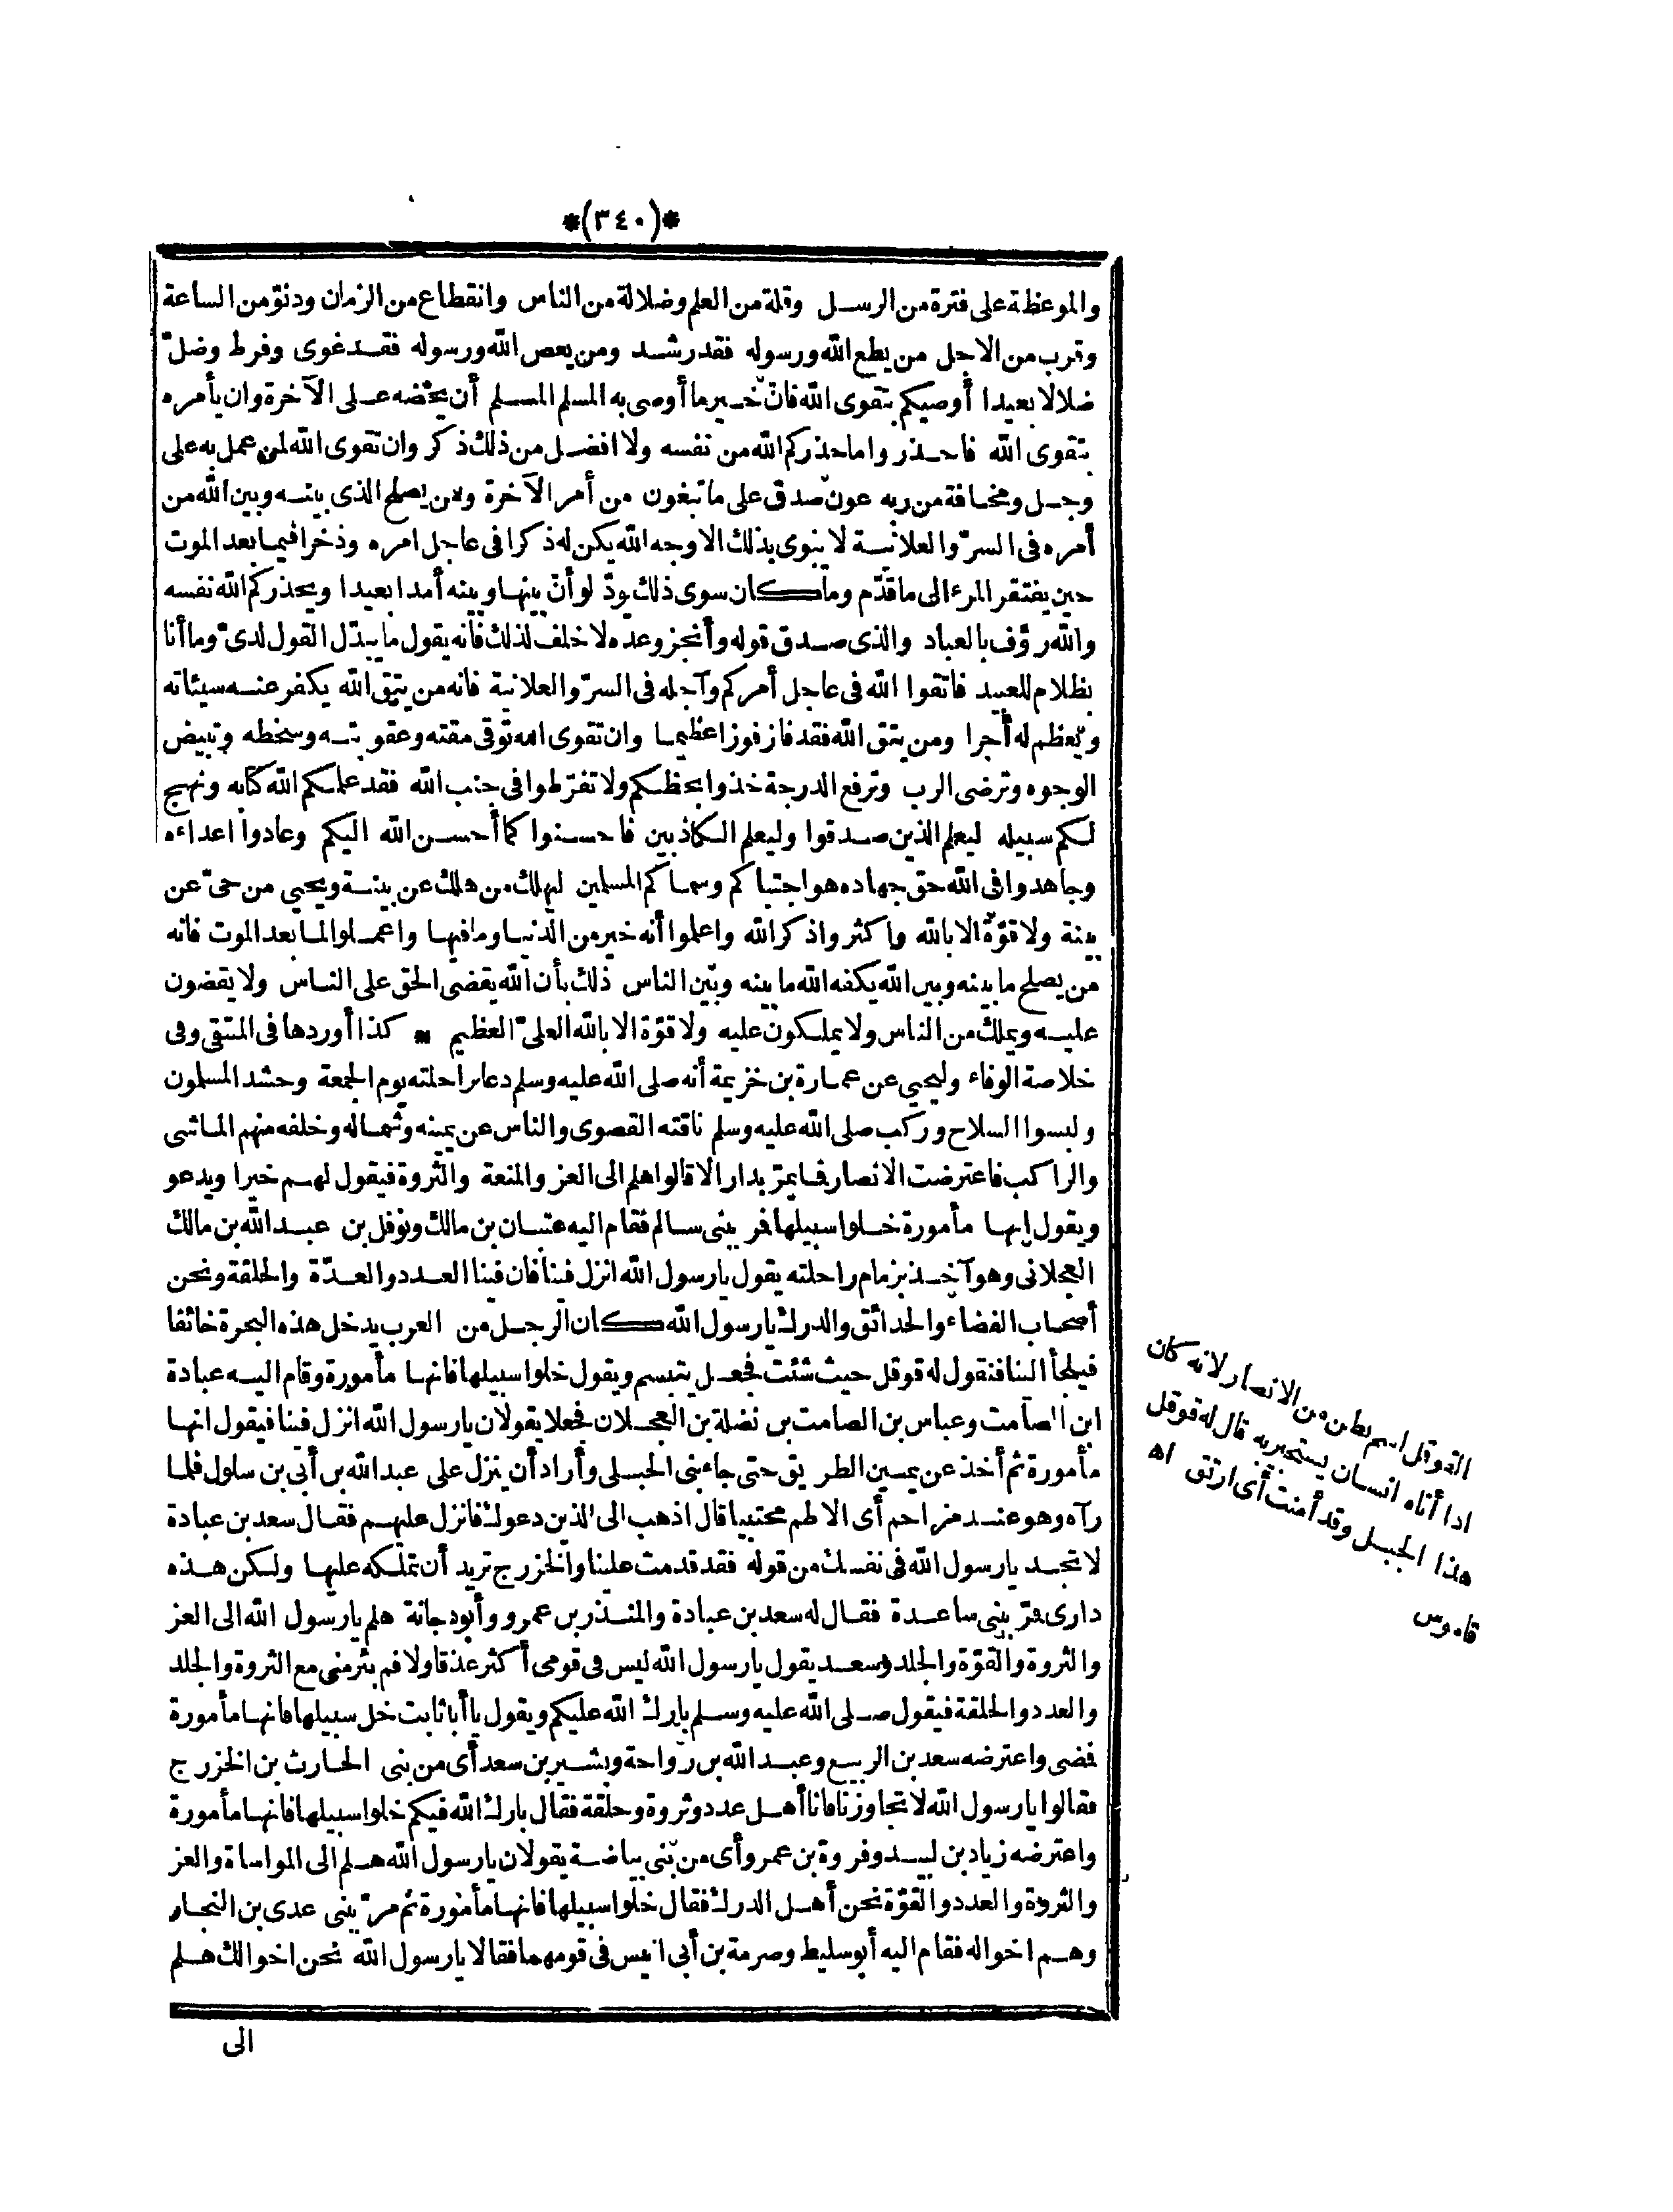 *(٣٤٠)*
والموعظة على فترة من الرسل وقلة من العلم وضلالة من الناس وانقطاع من الزمان ودنوّ من الساعة
وقرب من الاجل من يطع الله ورسوله فقد رشد ومن يعص الله ورسوله فقد غوى وفرط وضلّ
ضلالا بعيدا أوصيكم بتقوى الله فانّ خير ما أوصى به المسلم المسلم أن يحضه على الآخرة وان يأمره
بتقوى الله فاحذروا ما حذركم الله من نفسه ولا افضل من ذلك ذكر وان تقوى الله لمن عمل به على
وجل ومخافة من ربه عون صدق على ما تبغون من أمر الآخرة ومن يصلح الذى بينه وبين الله من
أمره فى السرّ والعلانية لا ينوى بذلك الا وجه الله يكن له ذكرا فى عاجل امره وذخرا فيما بعد الموت
حين يفتقر المرء الى ما قدّم وما كان سوى ذلك يودّ لو أنّ بينها وبينه أمدا بعيدا ويحذركم الله نفسه
والله رؤف بالعباد والذى صدق قوله وأنجز وعده لا خلف لذلك فانه يقول ما يبدّل القول لدىّ وما أنا
بظلام للعبيد فاتقوا الله فى عاجل أمركم وآجله فى السرّ والعلانية فانه من يتق الله يكفر عنه سيئاته
ويعظم له أجرا ومن يتق الله فقد فاز فوزا عظيما وان تقوى الله توقى مقته وعقوبته وسخطه وتبيض
الوجوه وترضى الرب وترفع الدرجة خذوا بحظكم ولا تفرّطوا فى جنب الله فقد علمكم الله كتابه ونهج
لكم سبيله ليعلم الذين صدقوا وليعلم الكاذبين فاحسنوا كما أحسن الله اليكم وعادوا اعداءه
وجاهدوا فى الله حق جهاده هو اجتباكم وسماكم المسلمين ليهلك من هلك عن بينة ويحيي من حىّ عن
بينة ولا قوّة الا بالله واكثروا ذكر الله واعلموا أنه خير من الدنيا وما فيها واعملوا لما بعد الموت فانه
من يصلح ما بينه وبين الله يكفه الله ما بينه وبين الناس ذلك بأن الله يقضى الحق على الناس ولا يقضون
عليه ويملك من الناس ولا يملكون عليه ولا قوّة الا بالله العلىّ العظيم * كذا أوردها فى المنتقى وفى
خلاصة الوفاء وليحيي عن عمارة بن خزيمة أنه صلى الله عليه وسلم دعا براحلته يوم الجمعة وحشد المسلمون
ولبسوا السلاح وركب صلى الله عليه وسلم ناقته القصوى والناس عن يمينه وشماله وخلفه منهم الماشى
والراكب فاعترضت الانصار فما يمرّ بدار الا قالوا هلم الى العز والمنعة والثروة فيقول لهم خيرا ويدعو
ويقول انها مأمورة خلوا سبيلها فمر ببنى سالم فقام اليه عتبان بن مالك ونوفل بن عبد الله بن مالك
العجلانى وهو آخذ بزمام راحلته يقول يارسول الله انزل فينا فان فينا العدد والعدّة والحلقة ونحن
أصحاب الفضاء والحدائق والدرك يارسول الله كان الرجل من العرب يدخل هذه البحرة خائفا
فيلجأ الينا فنقول له قوقل حيث شئت فجعل يتبسم ويقول خلوا سبيلها فانها مأمورة وقام اليه عبادة
ابن الصامت وعباس بن الصامت بن نضلة بن العجلان فجعلا يقولان يارسول الله انزل فينا فيقول انها
مأمورة ثم أخذ عن يمين الطريق حتى جاء بنى الحبلى وأراد أن ينزل على عبد الله بن أبى بن سلول فلما
رآه وهو عند مزاحم أى الاطم محتبيا قال اذهب الى الذين دعوك فانزل عليهم فقال سعد بن عبادة
لا تجد يارسول الله فى نفسك من قوله فقد قدمت علينا والخزرج تريد أن تملكه عليها ولكن هذه
دارى فمرّ ببنى ساعدة فقال له سعد بن عبادة والمنذر بن عمرو وأبو دجانة هلم يارسول الله الى العز
والثروة والقوّة والجلد وسعد يقول يارسول الله ليس فى قومى أكثر عذقا ولا فم بئر منى مع الثروة والجلد
والعدد والحلقة فيقول صلى الله عليه وسلم بارك الله عليكم ويقول يا أبا ثابت خل سبيلها فانها مأمورة
فمضى واعترضه سعد بن الربيع وعبد الله بن رواحة وبشير بن سعد أى من بنى الحارث بن الخزرج
فقالوا يارسول الله لا تجاوزنا فانا أهل عدد وثروة وحلقة فقال بارك الله فيكم خلوا سبيلها فانها مأمورة
واعترضه زياد بن لبيد وفروة بن عمرو أى من بنى بياضة يقولان يارسول الله هلم الى المواساة والعز
والثروة والعدد والقوّة نحن أهل الدرك فقال خلوا سبيلها فانها مأمورة ثم مرّ ببنى عدى بن النجار
وهم اخواله فقام اليه أبو سليط وصرمة بن أبى انيس فى قومهما فقالا يارسول الله نحن اخوالك هلم
الى
القوقل اسم بطن من الانصار لانه كان
اذا أتاه انسان يستجير به قال له قوقل
هذا الجبل وقد أمنت أى ارتق اه
قاموس